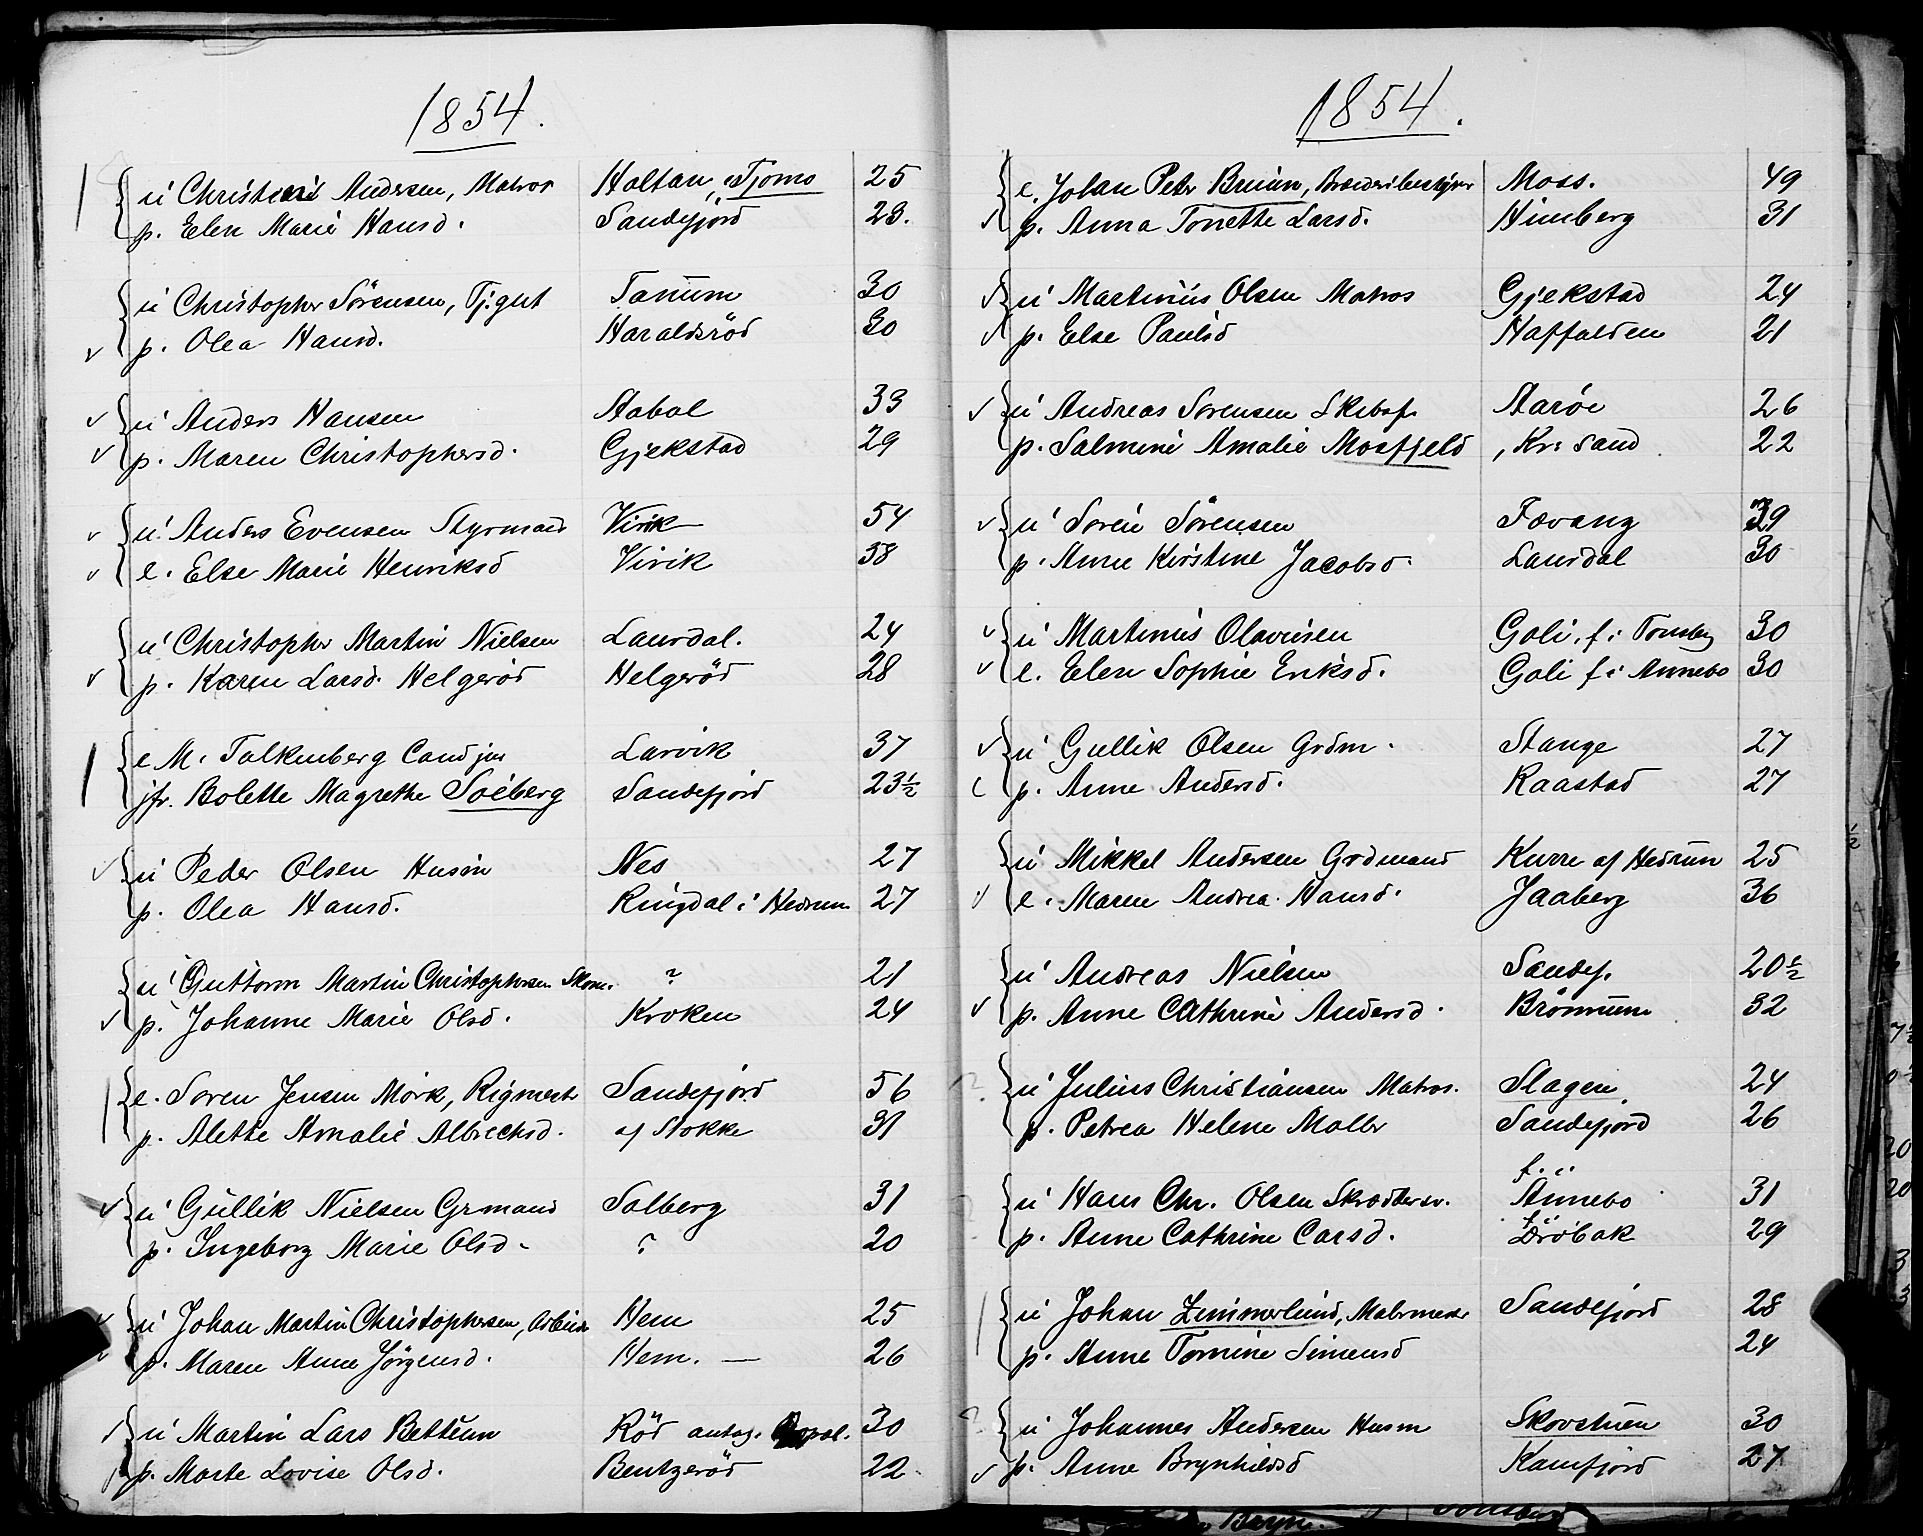 1854.
u Christen Andersen, Matros Holtan, Tjomo 25
p. Elen Marie Hansd. Sandefjord 23.
u Christopher Sörensen, Tj.gut Tanum 30
p. Olea Hansd. Haraldsröd 30
u Anders Hansen Aabol 33
p. Maren Christophersd. Gjekstad 29
u. Anders Evensen Styrmand Virik 54
e. Else Marie Henriksd Virik 38
u Christopher Martin Nielsen Lauvdal. 24
p. Karen Larsd. Helgeröd Helgeröd 28
e M. Falkenberg Cand jur Larvik 37
jfr. Bolette Magrethe Söeberg Sandefjord 23½
u Peder Olsen Husm Nes 27
p. Olea Hansd. Ringdal i Hedrum 27
u Guttorm Martin Christophersen Skom. ? 21
p. Johanne Marie Olsd. Kroken 24
e. Soren Jensen Mörk, Rigmestr Sandefjord 56
p. Alette Amalie Albrechtsd. af Stokke 31
u Gullik Nielsen Grmand Solberg 31
p. Ingeborg Marie Olsd. ? 20
u Johan Martin Christophersen, Arbeider Hem 25
p. Maren Anne Jörgensd. Hem. — 26
u Martin Lars Bettum Röd antag. 30
p. Marte Lovise Olsd. Bentzeröd 22
1854.
e. Johan Peter Bruun, Brænderibestyrer Moss. 49
p. Anna Tonette Larsd. Himberg 31
u Martinius Olsen Matros Gjekstad 24
p. Else Paulsd Haffalden 21
u Andreas Sorensen Skibsf. Aaröe 26
p. Salmine Amalie Mosfjeld , Kr: sand 22
u Soren Sörensen Fævang 39
p. Anne Kirstine Jacobsd. Lauvdal 30
u Martinus Olavesen Goli, f. i Tonsberg 30
e. Elen Sophie Eriksd. Goli f i Annebo 30
u Gullik Olsen Grdm. Stange 27
p. Anne Andersd. Raastad 27
u Mikkel Andersen Grdmand Kurre af Hedrum 25
e. Maren Andrea Hansd. Jaaberg 36
u Andreas Nielsen Sandef. 20½
p. Anne Cathrine Andersd. Brönnum 32
u Julius Christiansen Matros. Slagen 24
p. Petrea Helene Moller Sandefjord 26
f. i
u Hans Chr. Olsen Skræddersv. Annebo 31
f. i
p. Anne Cathrine Carsd. Dröbak 29
u Johan Zimmerlund, Malermester Sandefjord 28
p. Anne Tomine Simensd 24
u Johannes Andersen Husm Skovstuen 30
p. Anne Brynhildsd Kamfjord 27